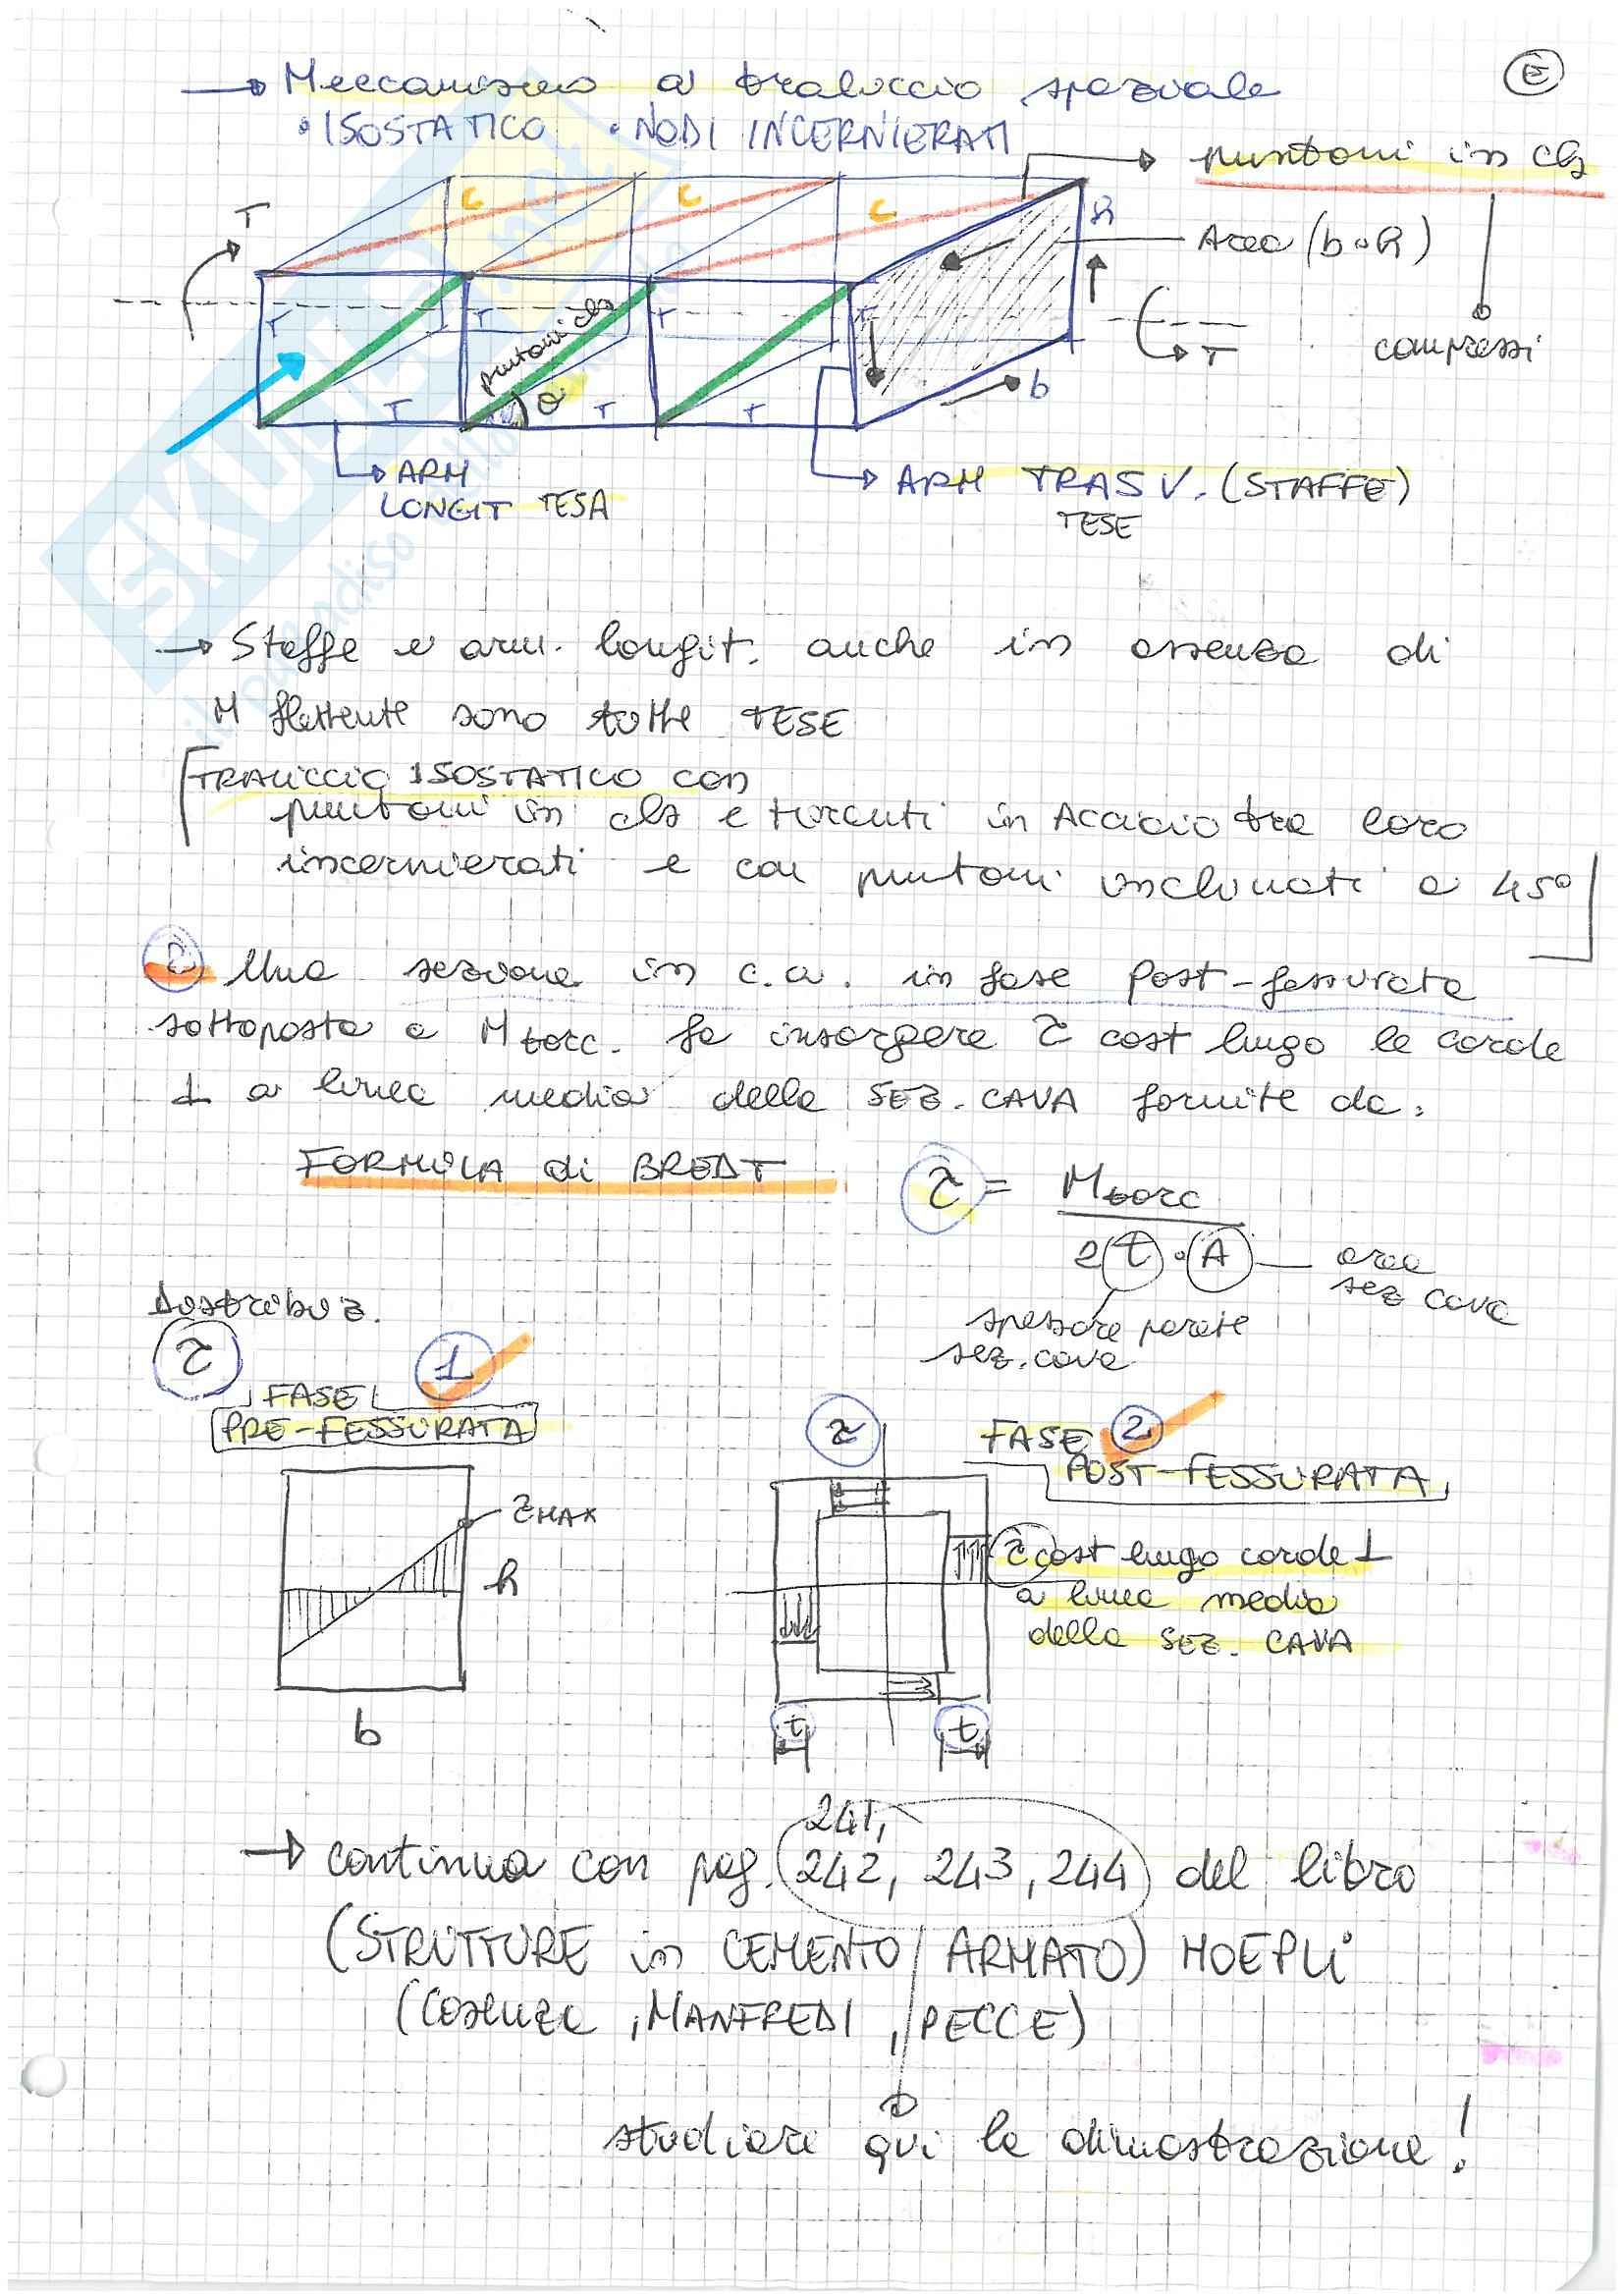 → Meccanismo a traliccio spaziale
E
• ISOSTATICO • NODI INCERNIERATI
→ puntoni in cls
C C C
h
T
Area (b·h)
T T T T
puntoni cls
θ
T T T
T
compressi
b
→ ARM
LONGIT TESA
→ ARM TRASV. (STAFFE)
TESE
→ Staffe e arm. longit. anche in assenza di
M flettente sono tutte TESE
TRALICCIO ISOSTATICO con
puntoni in cls e tiranti in Acciaio tra loro
incernierati e con puntoni inclinati a 45°
② Una sezione in c.a. in fase post-fessurata
sottoposta a M torc. fa insorgere τ cost lungo le corde
⊥ a linea media della SEZ. CAVA fornite da:
FORMULA di BREDT
τ = M torc / 2 t · A
area
sez cava
spessore parete
sez. cava
Distribuz.
τ 1
FASE
PRE-FESSURATA
τ FASE 2
POST-FESSURATA
τ MAX
h
τ cost lungo corde ⊥
a linea media
della SEZ. CAVA
b
t t
241,
→ continua con pag. 242, 243, 244 del libro
(STRUTTURE in CEMENTO ARMATO) HOEPLI
(Cosenza, MANFREDI, PECCE)
studiare qui la dimostrazione!